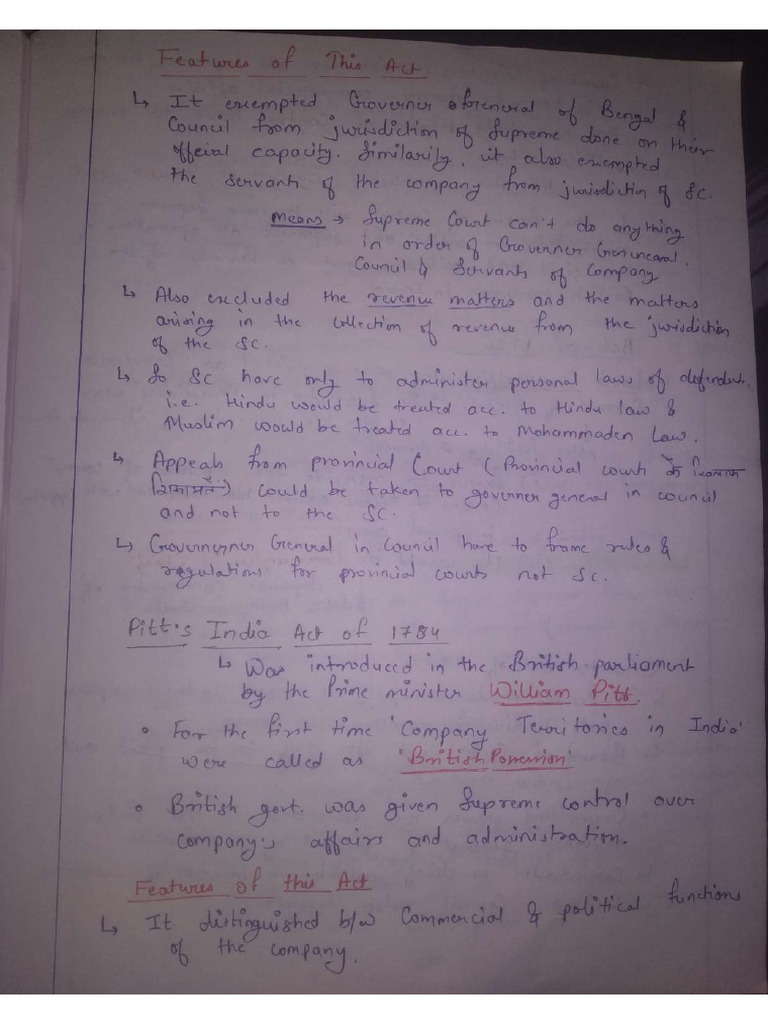 Features of This Act
↳ It exempted Governer General of Bengal &
Council from jurisdiction of Supreme done on their
official capacity. Similarily, it also exempted
the servants of the company from jurisdictin of SC.
means → Supreme Court can't do anything
in order of Governer Genuneral.
Council & Servants of Company
↳ Also excluded the revenue matters and the matters
arising in the collection of revenue from the jurisdiction
of the SC.
↳ So SC have only to administer personal laws of defendent.
i.e. Hindu would be treated acc. to Hindu law &
Muslim would be treated acc. to Mohammaden Law.
↳ Appeals from provincial Court (Provincial courts के खिलाफ
शिकायतें) could be taken to governer general in council
and not to the SC.
↳ Governerner General in Council have to frame rules &
regulations for provincial courts not SC.
Pitt's India Act of 1784
↳ Was introduced in the British parliament
by the Prime minister William Pitt.
• For the first time 'Company Territories in India'
were called as 'British Possession'
• British govt. was given Supreme control over
company's affairs and administration.
Features of this Act
↳ It distinguished b/w Commercial & political functions
of the company.